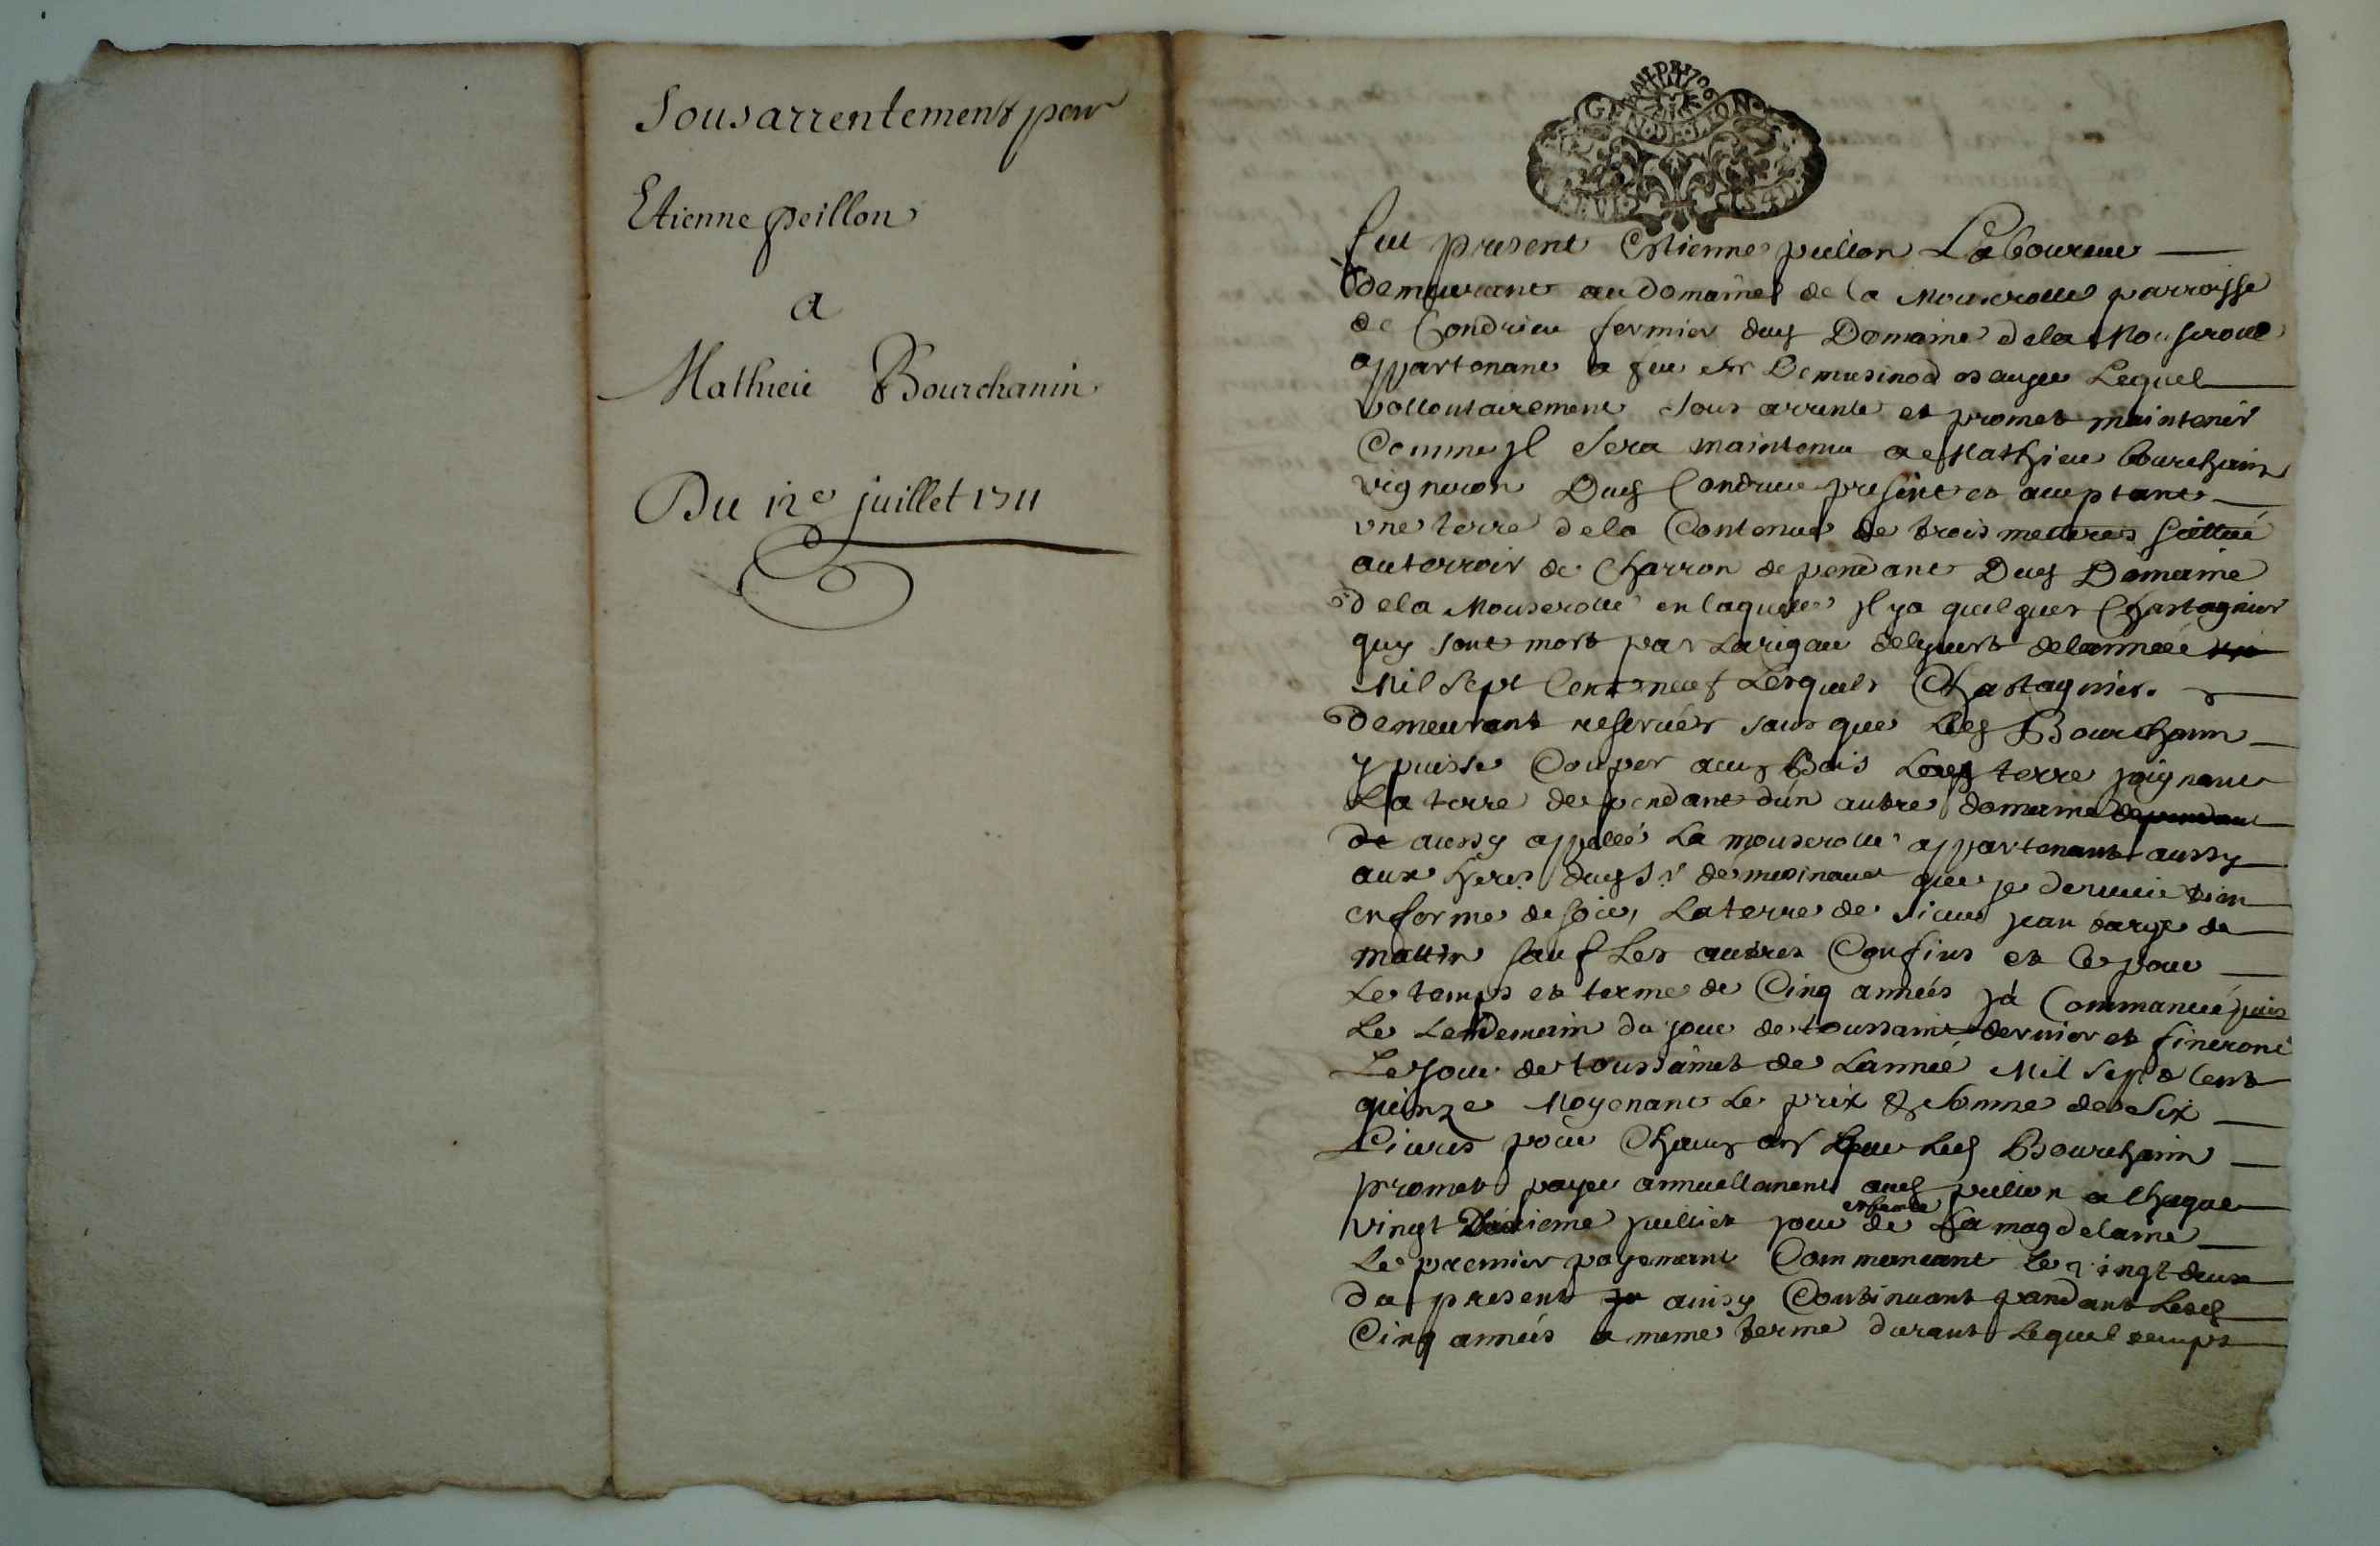 Sousarrentement pour
Etienne peillon
a
Mathieu Bourchanin
Du 12e juillet 1711
GENERAUX DE LYON
Fut present Estienne peillon Laboureur
demeurant au domaine de la Mouserolle parroisse
de Condrieu fermier dud Domaine dela Mouserolle
appartenant a feu Sr Demusinod Lequel
vollontairement sous arrente et promet maintenir
Comme jl sera maintenu a Mathieu bourchanin
vigneron Dud Condrieu present et aceptant
vne terre dela Contenue de trois metteres scittué
au terroir de Charron dependant Dud Domaine
dela Mouserolle en laquelle jl ya quelques Chastagnier
quy sont mort par larigeur delyvert delannée
Mil Sept Cent neuf Lesquels Chastagnier
demeurant reservés sans que led Bourchanin
y puisse Couper aucung bois Lad terre joignant
La terre dependant dun autre domaine dependant
de aussy appellé La mouserolle appartenant aussy
aux hers dud Sr demusinaud que je
en forme de soir, La terre de sieur jean barge de
mattin sauf Les autres Confins et Ce pour
Le temps et terme de Cinq années ja Commancé puis
Le Lendemain du jour de toussaint dernier et fineront
Le jour de toussaint de Lannée Mil Sept Cent
quinze Moyenant Le prix & somme de Six
Livres pour Chacung an que Led Bourchanin
promet payer annuellement aud peillon a Chaque
vingt Deuxieme juillet jour et feste de La magdelaine
Le premier payement Commencant Le vingt deux
du present ju ainsy Continuant pandant Lesd
Cinq années a meme terme durant Lequel temps